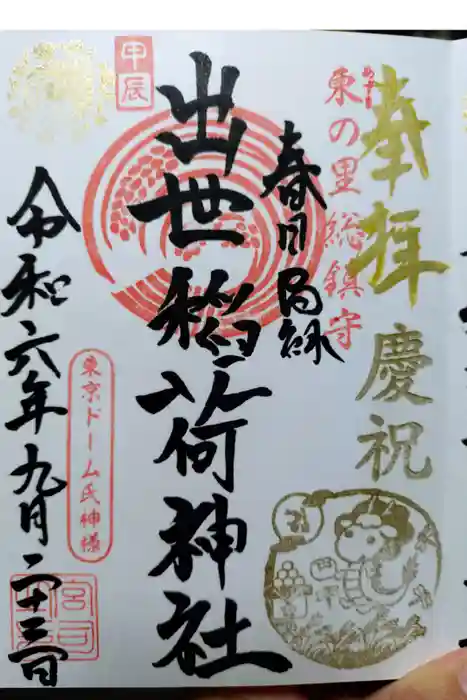 奉拝
慶祝
東の里総鎮守
春日局縁
出世稲荷神社
甲辰
東京ドーム氏神様
令和六年九月二十三日
宮司